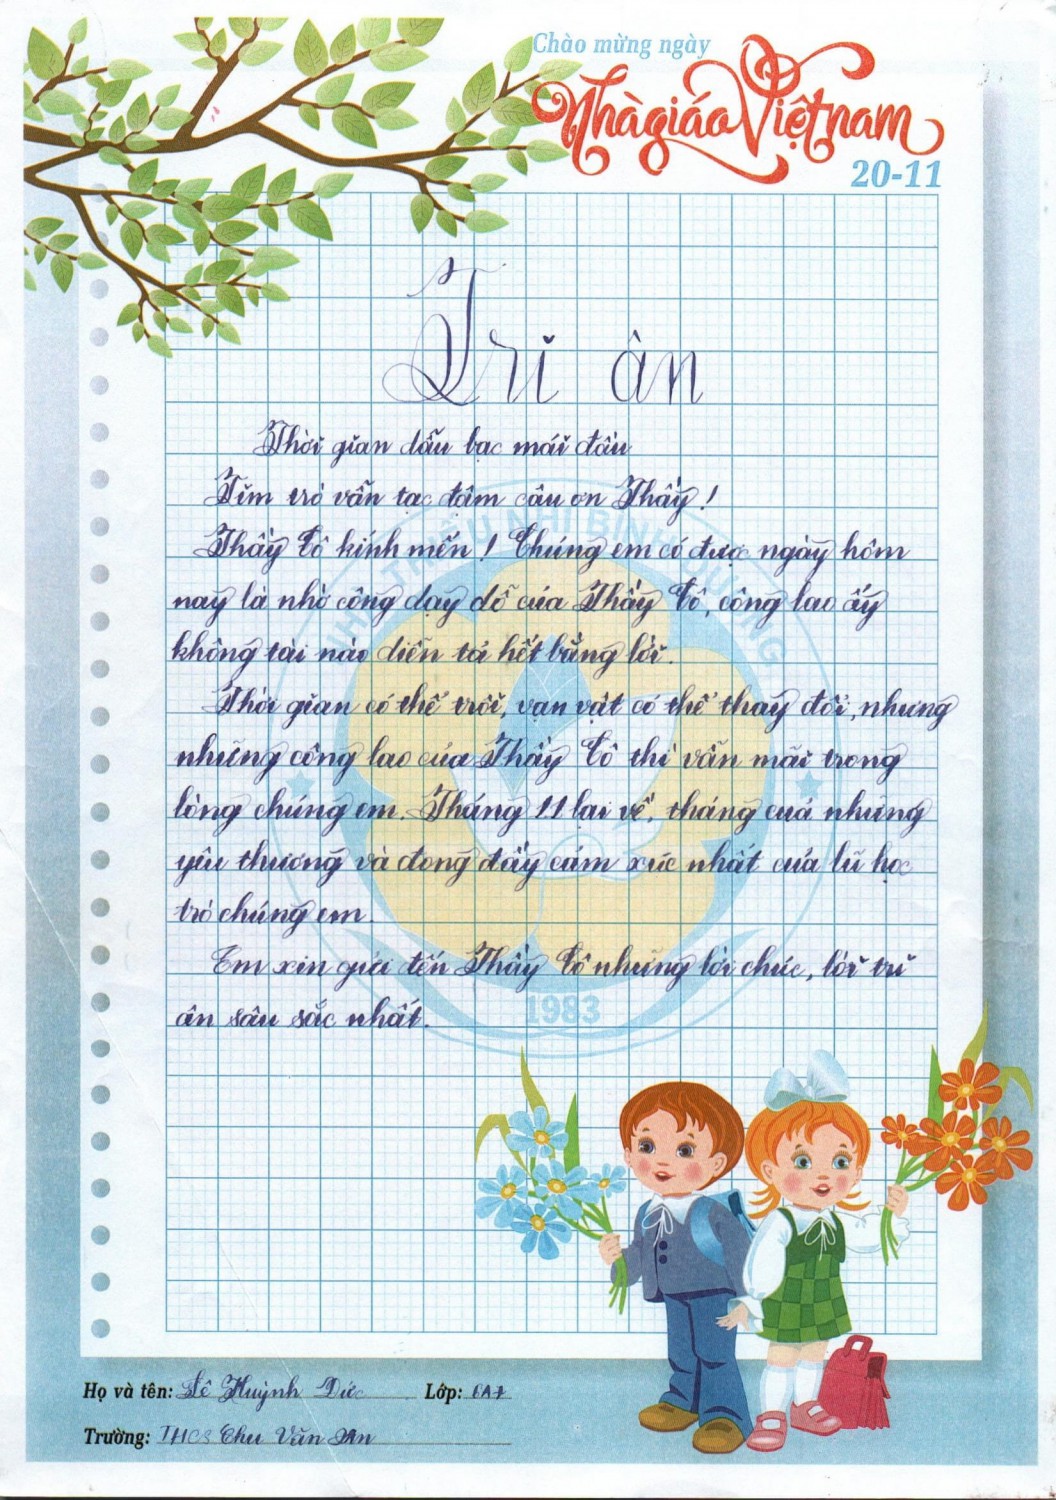 Chào mừng ngày
Nhà giáo Việt nam
20-11
Tri ân
Thời gian dẫu bạc mái đầu
Tim trò vẫn tạc đậm câu ơn Thầy!
Thầy Cô kính mến! Chúng em có được ngày hôm
nay là nhờ công dạy dỗ của Thầy Cô, công lao ấy
không tài nào diễn tả hết bằng lời.
Thời gian có thể trôi, vạn vật có thể thay đổi, nhưng
những công lao của Thầy Cô thì vẫn mãi trong
lòng chúng em. Tháng 11 lại về, tháng của những
yêu thương và đong đầy cảm xúc nhất của lũ học
trò chúng em.
Em xin gửi đến Thầy Cô những lời chúc, lời tri
ân sâu sắc nhất.
NHÀ THIẾU NHI BÌNH DƯƠNG
1983
Họ và tên: Lê Huỳnh Đức Lớp: 6A7
Trường: THCS Chu Văn An